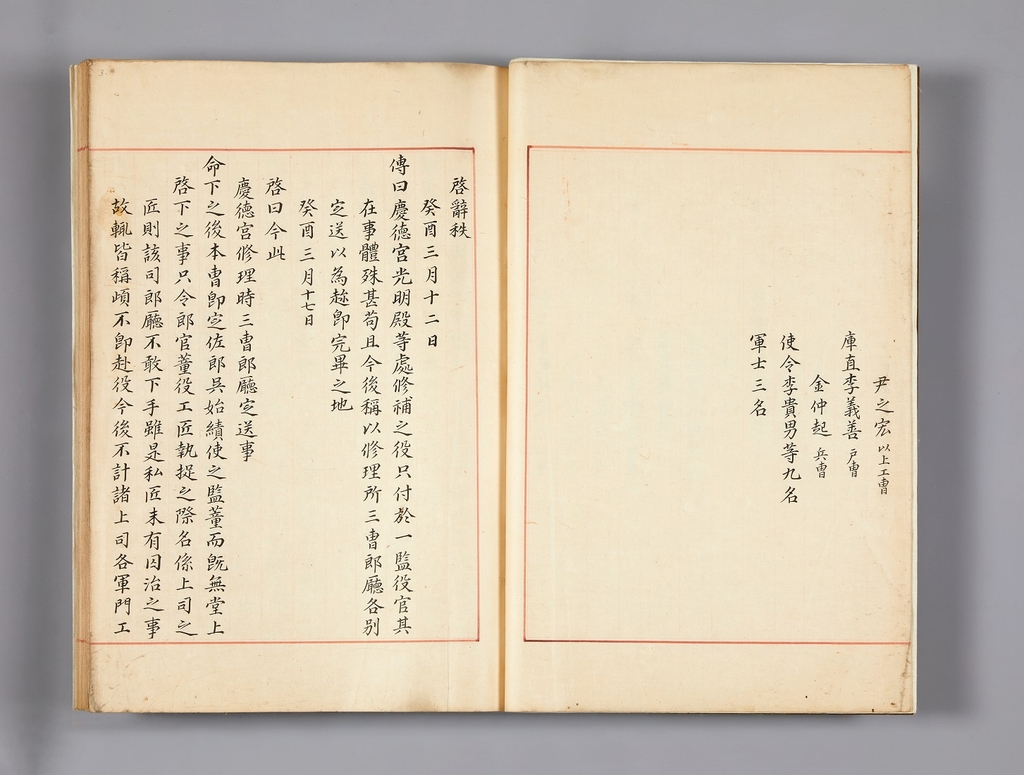 尹之宏 以上工曹
庫直李義善 戶曹
金仲起 兵曹
使令李貴男等九名
軍士三名
啓辭秩
癸酉三月十二日
傳曰慶德宮光明殿等處修補之役只付於一監役官其
在事體殊甚苟且今後稱以修理所三曹郎廳各別
定送以為趂卽完畢之地
癸酉三月十七日
啓曰今此
慶德宮修理時三曹郎廳定送事
命下之後本曹卽定佐郎吳始績使之監董而旣無堂上
啓下之事只令郎官董役工匠執捉之際名係上司之
匠則該司郎廳不敢下手雖是私匠未有囙治之事
故輒皆稱頉不卽赴役今後不計諸上司各軍門工